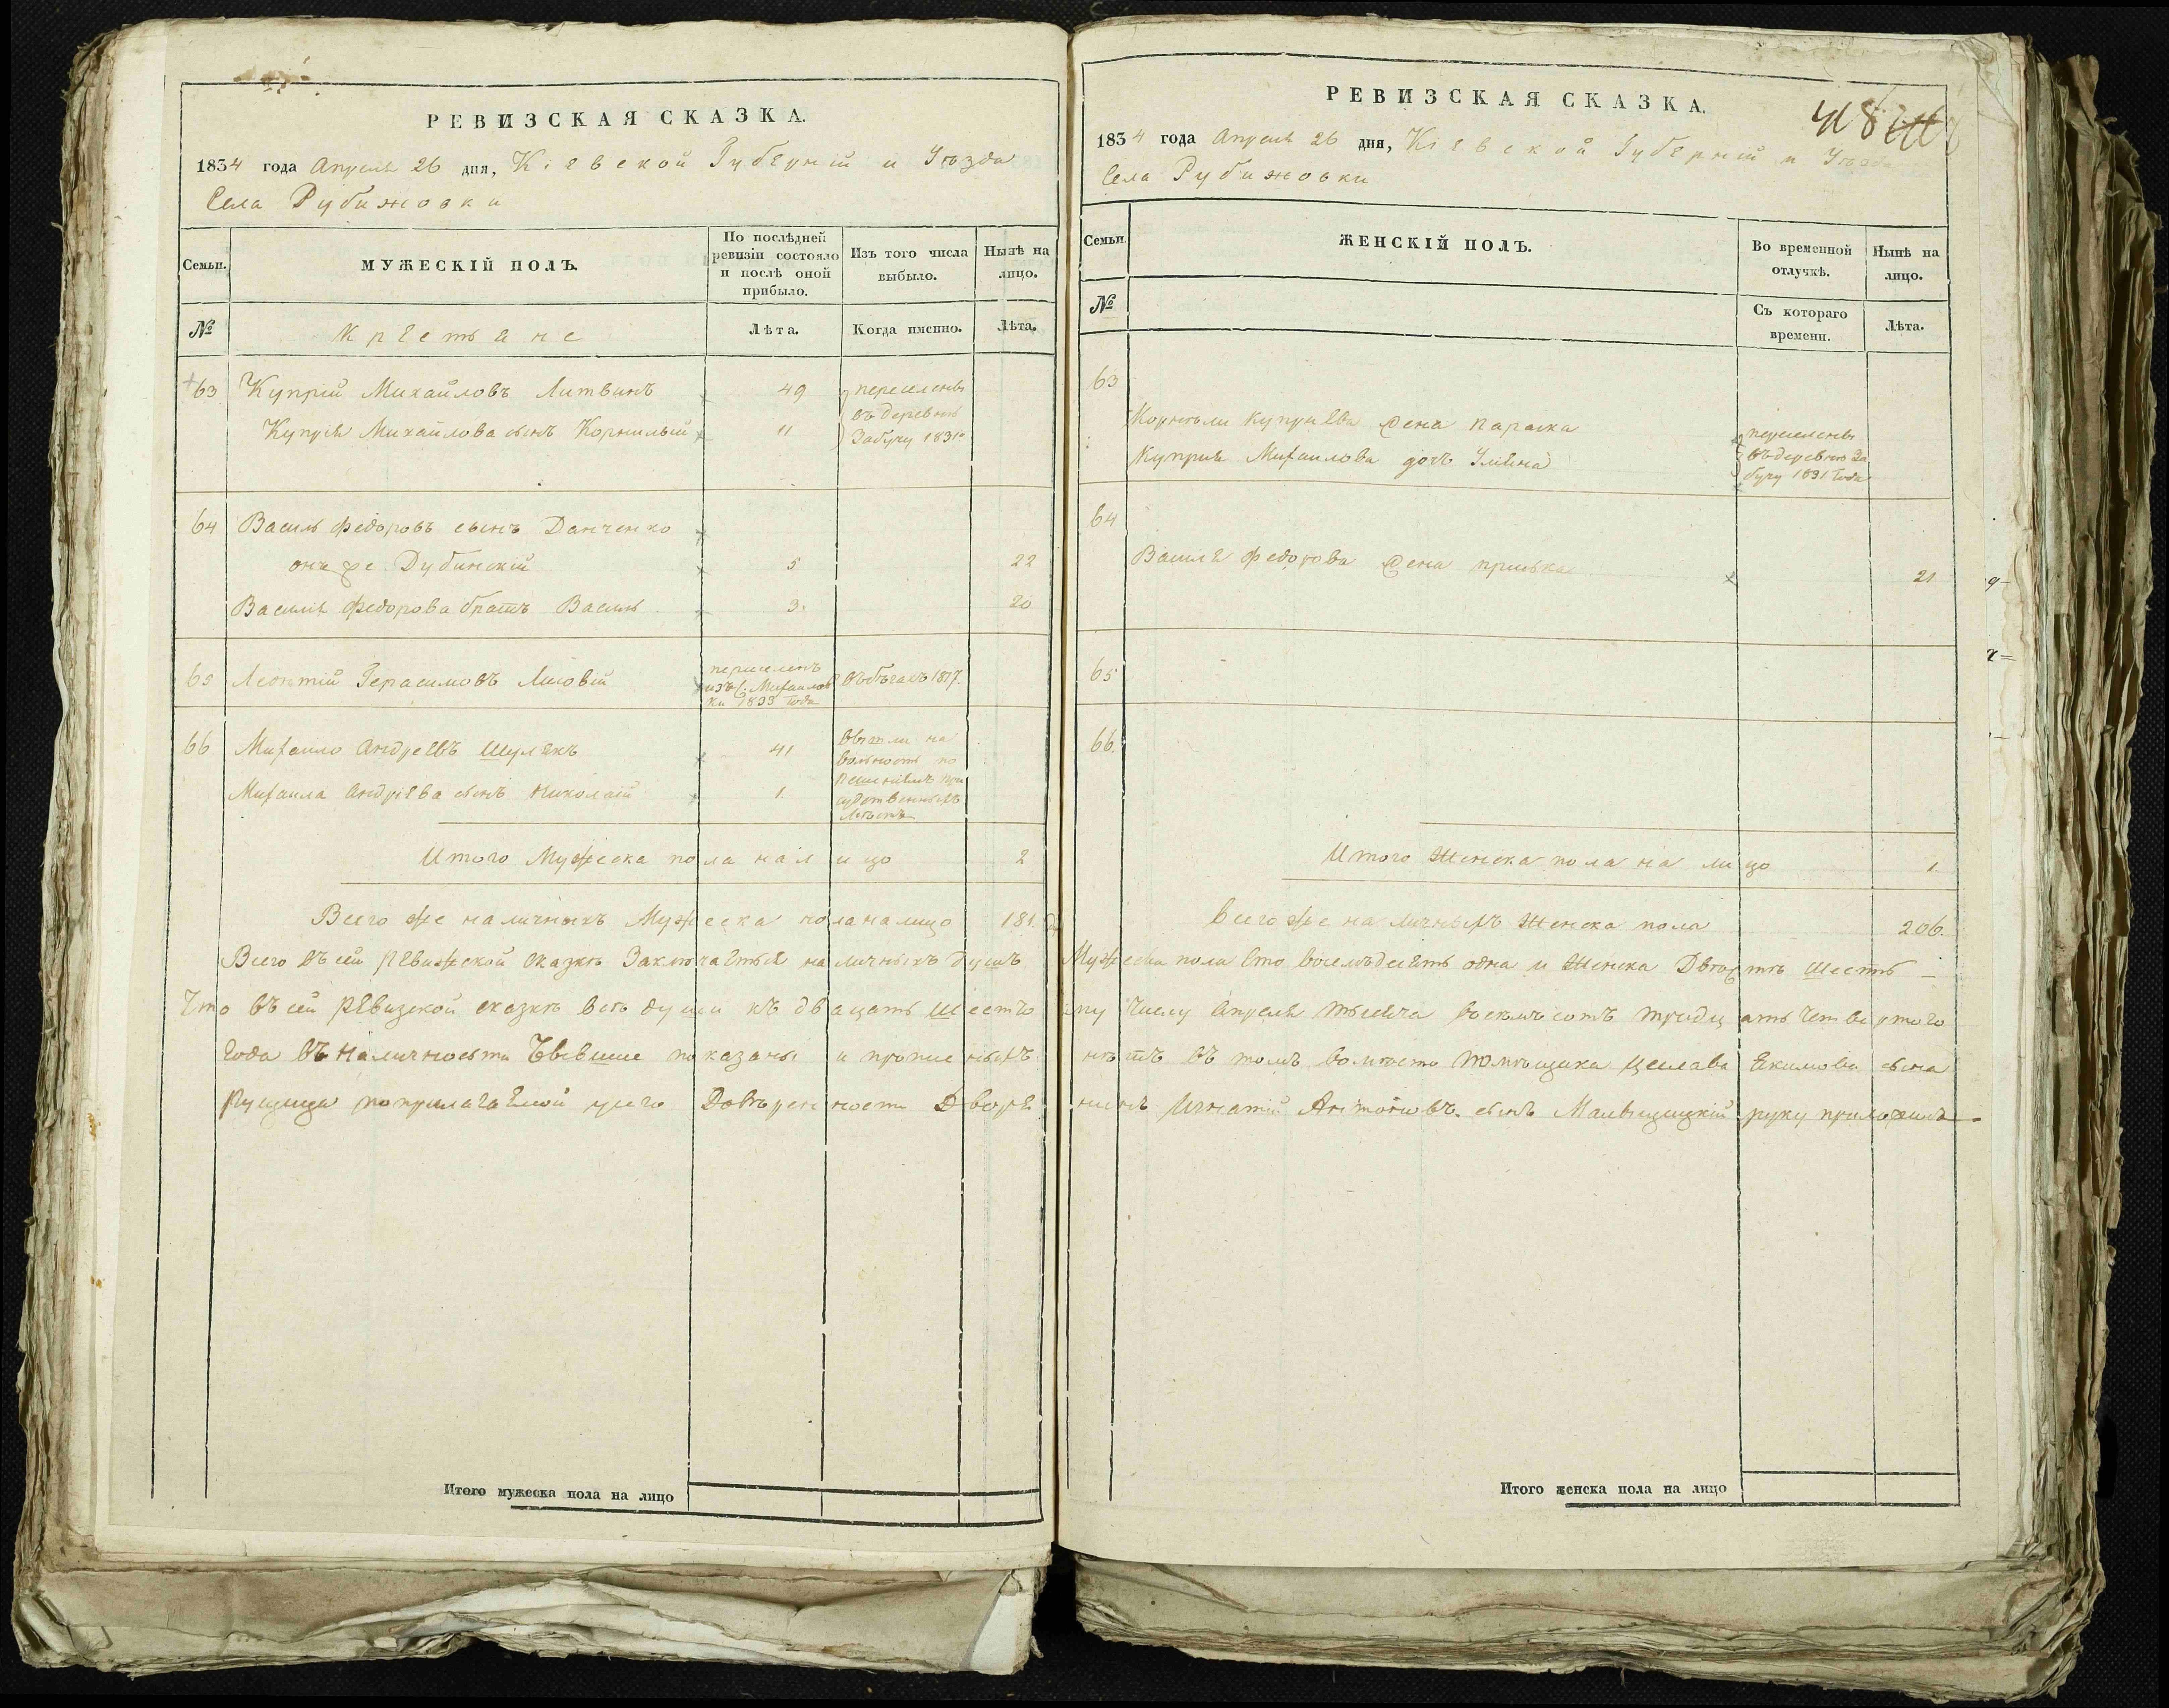 РЕВИЗСКАЯ СКАЗКА.
1834 года Апреля 26 дня, Кіевской Губерніи и Уѣзда
Села Рубижовки
Семьи.
МУЖЕСКІЙ ПОЛЪ.
По послѣдней
ревизіи состояло
и послѣ оной
прибыло.
Изъ того числа
выбыло.
Нынѣ на
лицо.
№
Крестьяне
Лѣта.
Когда именно.
Лѣта.
63 Купрій Михайловъ Литвинъ 49 переселены
въ деревню
Купрія Михайлова сынъ Корнилый 11 Забучу 1831го
64 Василь Федоровъ сынъ Данченко
онъ же Дубинскій 5 22
Василія Федорова братъ Василь 3. 20
65 Леонтій Герасимовъ Лисовій переселенъ
изъ с. Михайлов
ки 1833 года въ бѣгахъ 1817.
66 Михаило Андреевъ Шулякъ 41 вышли на
вольность по
Михаила Андреева сынъ Николай 1.
Итого Мужеска пола на лицо 2
Всего же наличныхъ Мужеска пола налицо 181.
Всего въ сей ревижской сказкѣ Заключается наличныхъ душъ
Что въ сей Ревизской сказкѣ всѣ души къ двацать шестго
Года въ Наличности бывшие показаны и
по прилагаемой у сего Довѣренности Дворя
Итого мужеска пола на лицо
РЕВИЗСКАЯ СКАЗКА.
1834 года Апреля 26 дня, Кіевской Губерніи и Уѣзда
Села Рубижовки
Семьи.
ЖЕНСКІЙ ПОЛЪ.
Во временной
отлучкѣ.
Нынѣ на
лицо.
№
Съ котораго
времени.
Лѣта.
63
Куприева жена Параска переселены
Куприя Михаилова дочь Уляна въ деревню За
бучу 1831 года
64
Василя Федорова жена Приська 21
65
66.
Итого Женска пола на лицо 1.
Всего же наличныхъ Женска пола 206.
Мужеска пола сто восемъдесятъ одна и Женска Двѣстѣ шесть
му числу Апреля мѣсяца восемъсотъ тридцать четвертого
нѣтъ въ томъ помѣщика Екимова сына
нинъ Игнатій Антоновъ сынъ руку приложилъ